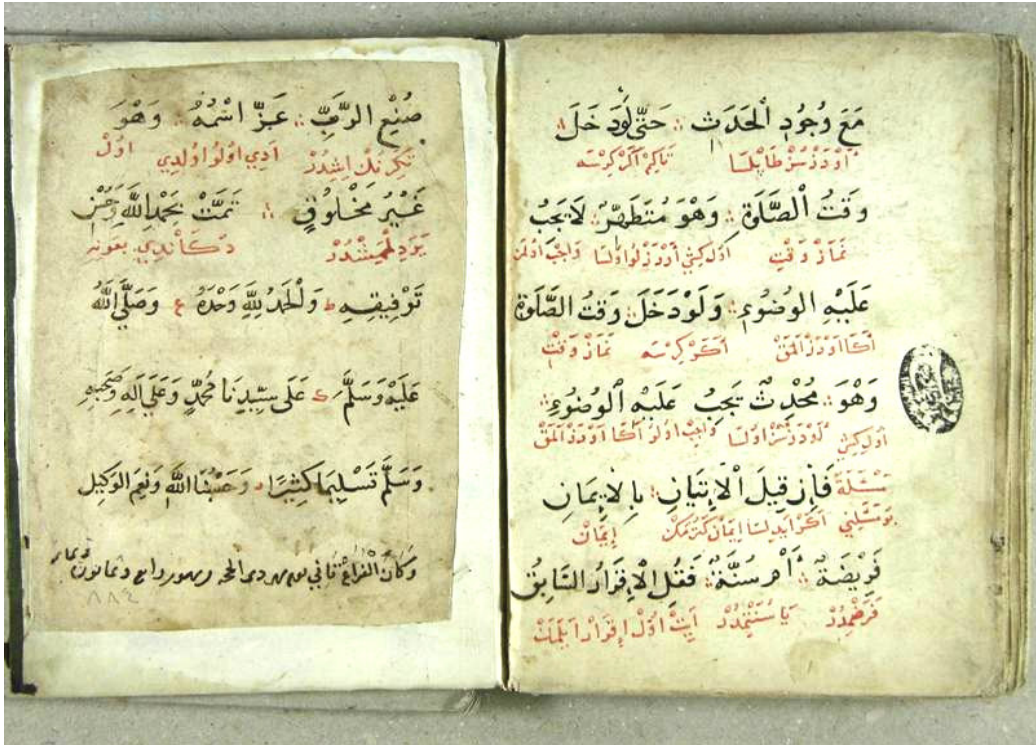 مَعَ وُجُودِ الْحَدَثِ ∴ حَتَّى لَوْ دَخَلَ
اَوْدَزْسُزْ طَابِلْسَا تَاكِمْ اَكَرْ كِرْسَه
وَقْتُ الصَّلَوةِ ∴ وَهْوَ مُتَطَهِّرٌ لَا يَجِبُ
نَمَازْ وَقْتِ اَوُلْ كِشِي اَوْدَزْلُو اوُلْسَا وَاجِبْ اوُلْمَز
عَلَيْهِ الْوُضُوءُ ∴ وَلَوْ دَخَلَ وَقْتُ الصَّلَوةِ
اَكَا اَوْدَزْ اَلْمَقْ اَكَرْ كِرْسَه نَمَازْ وَقْتِ
وَهْوَ ∴ مُحْدِثٌ يَجِبُ عَلَيْهِ الْوُضُوءُ ∴
اوُلْ كِشِي اَوْدَزْسُزْ اوُلْسَا وَاجِبْ اوُلُرْ اَكَا اَوْدَزْ اَلْمَقْ
مَسْئَلَة فَاِنْ قِيلَ الْاِتْيَانِ ∴ بِالْاِيمَانِ
اَكَرْ اَيْدِلْسَا اِيمَانْ
فَرِيضَةٌ ∴ اَمْ سُنَّةٌ ∴ فَقُلِ الْاِقْرَارُ السَّابِقُ
فَرْضْمِدُرْ يَا سُنَّتْمِدُرْ اَيِتْ اوُلْ اِقْرَارْ
صُنْعِ الرَّبِّ ∴ عَزَّ اسْمُهُ ∴ وَهْوَ
تَكْرِنِكْ اِشِدُرْ اَدِي اوُلُو اوُلْدِي اوُلْ
غَيْرُ مَخْلُوقٍ ∴ تَمَّتْ بِحَمْدِ اللهِ وَحُسْنِ
يَرَدِلْمَمِشْدُرْ دُكَانْدِي بِعَوْنِهِ
تَوْفِيقِهِ ط وَالْحَمْدُ لِلَّهِ وَحْدَهُ ع وَصَلَّى اللهُ
عَلَيْهِ وَسَلَّمَ عَلَى سَيِّدِنَا مُحَمَّدٍ وَعَلَى آلِهِ وَصَحْبِهِ
وَسَلَّمَ تَسْلِيمًا كَثِيرًا وَحَسْبُنَا اللهُ وَنِعْمَ الْوَكِيلُ
وَكَانَ الْفَرَاغُ ثَانِي الحجة رابع وثمانون
٨٨٤